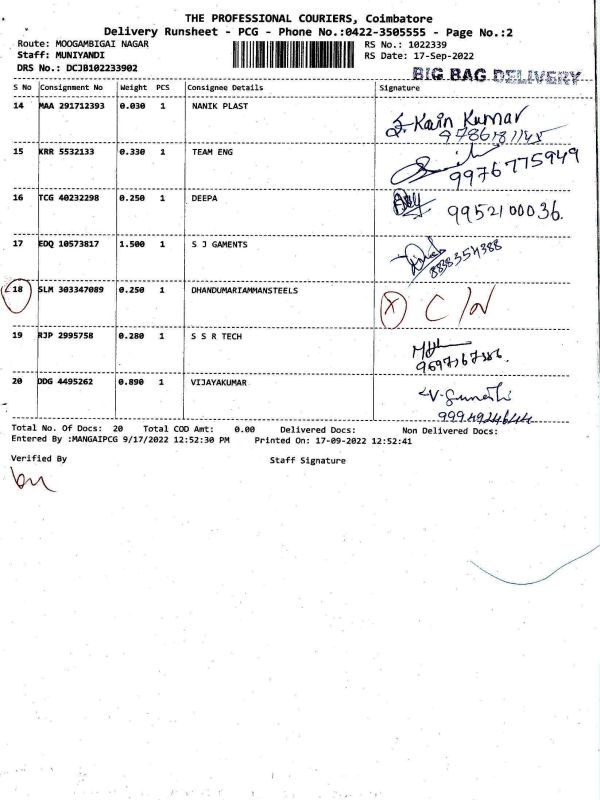 THE PROFESSIONAL COURIERS, Coimbatore
Delivery Runsheet - PCG - Phone No.:0422-3505555 - Page No.:2
Route: MOOGAMBIGAI NAGAR RS No.: 1022339
Staff: MUNIYANDI RS Date: 17-Sep-2022
DRS No.: DCJB102233902 BIG BAG DELIVERY
S No Consignment No Weight PCS Consignee Details Signature
14 MAA 291712393 0.030 1 NANIK PLAST
Kumar
15 KRR 5532133 0.330 1 TEAM ENG
9976775949
16 TCG 40232298 0.250 1 DEEPA
9952100036.
17 EDQ 10573817 1.500 1 S J GAMENTS
8838354388
18 SLM 303347089 0.250 1 DHANDUMARIAMMANSTEELS X C/N
19 RJP 2995758 0.280 1 S S R TECH
20 DDG 4495262 0.890 1 VIJAYAKUMAR
Total No. Of Docs: 20 Total COD Amt: 0.00 Delivered Docs: Non Delivered Docs:
Entered By :MANGAIPCG 9/17/2022 12:52:30 PM Printed On: 17-09-2022 12:52:41
Verified By Staff Signature